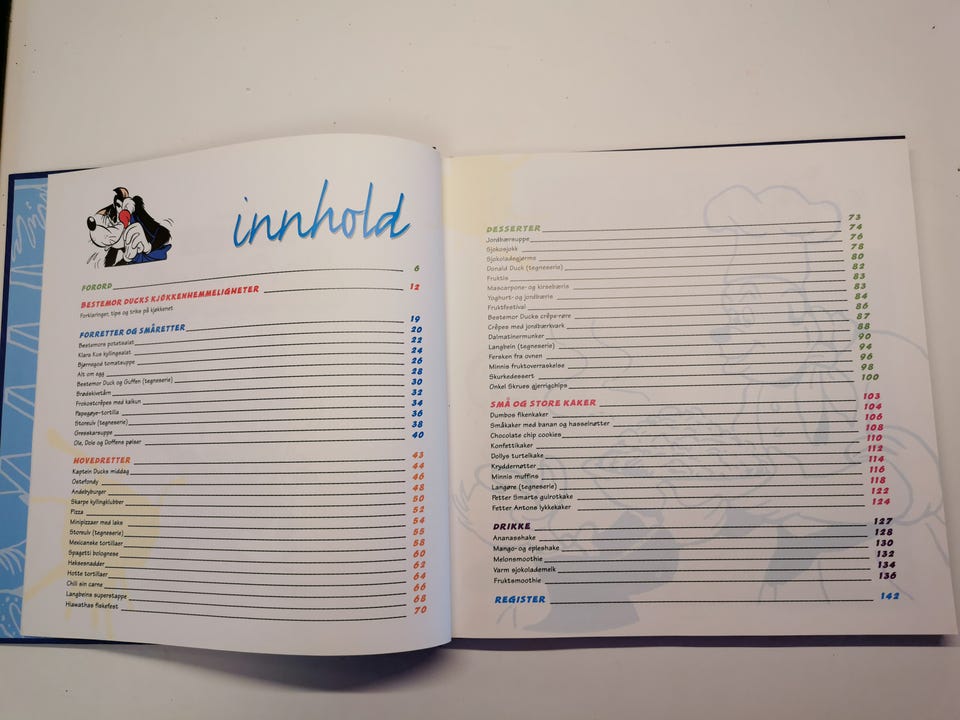 innhold
FORORD 6
BESTEMOR DUCKS KJØKKENHEMMELIGHETER 12
Forklaringer, tips og triks på kjøkkenet
FORRETTER OG SMÅRETTER 19
Bestemors potetsalat 20
Klara Kus kyllingsalat 22
Bjørnegod tomatsuppe 24
Alt om egg 26
Bestemor Duck og Guffen (tegneserie) 28
Brødskivetårn 30
Frokostcrêpes med kalkun 32
Papegøye-tortilla 34
Storeulv (tegneserie) 36
Gresskarsuppe 38
Ole, Dole og Doffens pølser 40
HOVEDRETTER 43
Kaptein Ducks middag 44
Ostefondy 46
Andebyburger 48
Skarpe kyllingklubber 50
Pizza 52
Minipizzaer med laks 54
Storeulv (tegneserie) 55
Mexicanske tortillaer 58
Spagetti bolognese 60
Heksesnadder 62
Hotte tortillaer 64
Chili sin carne 66
Langbeins superstappe 68
Hiawathas fiskefest 70
DESSERTER 73
Jordbærsuppe 74
Sjokosjokk 76
Sjokoladegjørms 78
Donald Duck (tegneserie) 80
Fruktis 82
Mascarpone- og kirsebæris 83
Yoghurt- og jordbæris 83
Fruktfestival 84
Bestemor Ducks crêpe-røre 86
Crêpes med jordbærkvark 87
Dalmatinermunker 88
Langbein (tegneserie) 90
Fersken fra ovnen 94
Minnis fruktoverraskelse 96
Skurkedessert 98
Onkel Skrues gjerrigchips 100
SMÅ OG STORE KAKER 103
Dumbos fikenkaker 104
Småkaker med banan og hasselnøtter 106
Chocolate chip cookies 108
Konfettikaker 110
Dollys turtelkake 112
Kryddernøtter 114
Minnis muffins 116
Langøre (tegneserie) 118
Petter Smarts gulrotkake 122
Fetter Antons lykkekaker 124
DRIKKE 127
Ananasshake 128
Mango- og epleshake 130
Melonsmoothie 132
Varm sjokolademelk 134
Fruktsmoothie 136
REGISTER 142